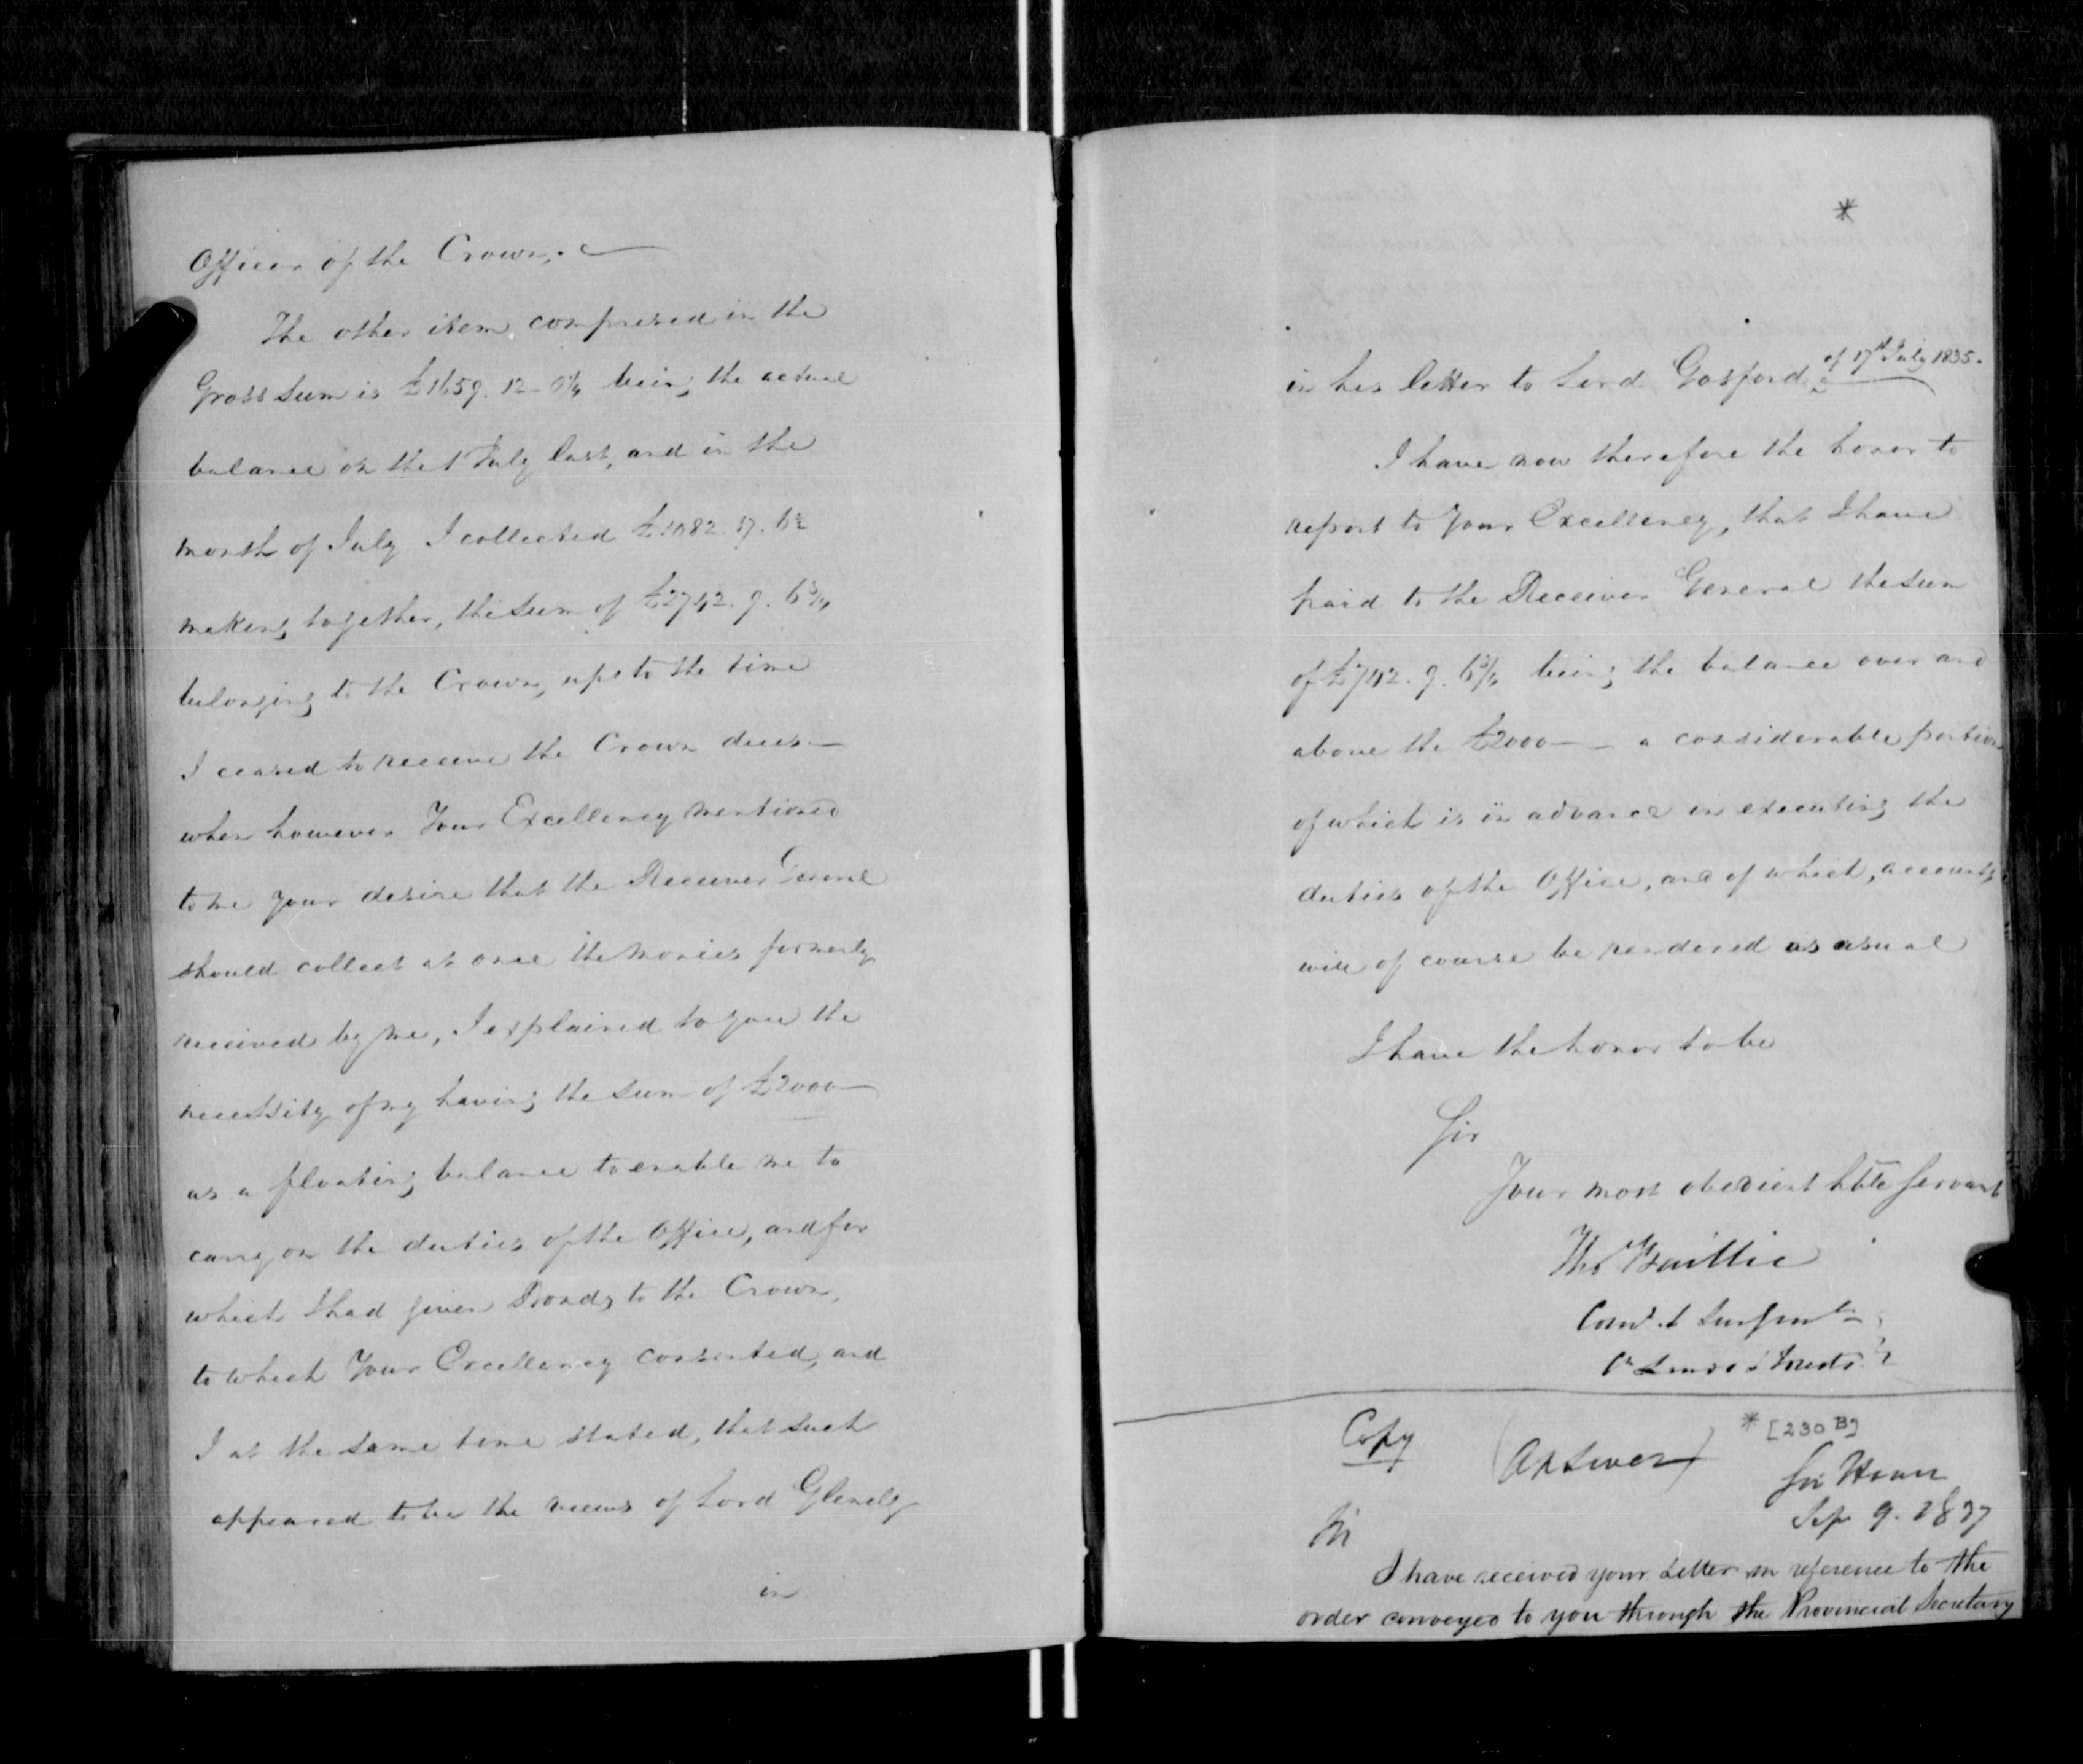 Officer of the Crown. —
The other item comprised in the
Gross sum is £1659. 12 - 0¼ being the actual
balance on the 1 July last, and in the
month of July I collected £1082. 17. 6½
making together, the sum of £2742. 9. 6¾
belonging to the Crown, up to the time
I ceased to receive the Crown dues —
when however Your Excellency mentioned
to me your desire that the Receiver General
should collect at once the monies formerly
received by me, I explained to you the
necessity of my having the sum of £2000 —
as a floating balance to enable me to
carry on the duties of the Office, and for
which I had given Bonds to the Crown,
to which Your Excellency consented, and
I at the same time stated, that such
appeared to be the views of Lord Glenelg
in
*
in his letter to Lord Gosford of 17th July 1835.
I have now therefore the honor to
report to Your Excellency, that I have
paid to the Receiver General the sum
of £742. 9. 6¾ being the balance over and
above the £2000 — a considerable portion
of which is in advance in executing the
duties of the Office, and of which, accounts
will of course be rendered as usual
I have the honor to be
Sir
Your most obedient hble Servant
Thos Baillie
Comr & Surv Genl
Cn Lands & Forests
Copy (Answer) * [230 B]
Sir
Sep 9. 1837
I have received your Letter in reference to the
order conveyed to you through the Provincial Secretary